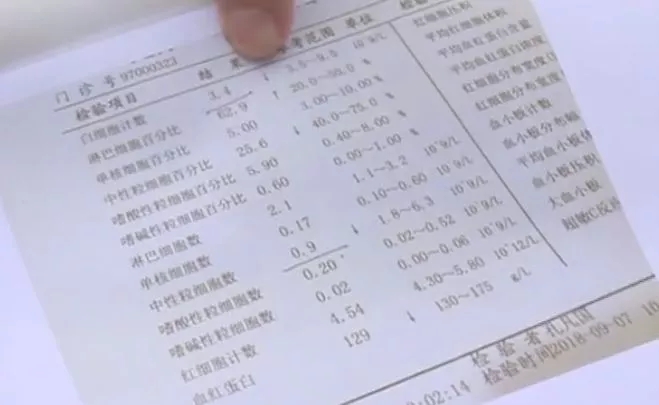 门诊号97000323
检验项目 结果 考范围 单位 检验
白细胞计数 3.4 ↓ 3.5~9.5 10^9/L 红细胞压积
淋巴细胞百分比 62.9 ↑ 20.0~50.0 % 平均红细胞体积
单核细胞百分比 5.00 3.00~10.00 % 平均血红蛋白含量
中性粒细胞百分比 25.6 ↓ 40.0~75.0 % 平均血红蛋白浓度
嗜酸性粒细胞百分比 5.90 0.40~8.00 % 红细胞分布宽度
嗜碱性粒细胞百分比 0.60 0.00~1.00 % 红细胞分布宽度
淋巴细胞数 2.1 1.1~3.2 10^9/L 血小板计数
单核细胞数 0.17 0.10~0.60 10^9/L 血小板分布
中性粒细胞数 0.9 ↓ 1.8~6.3 10^9/L 平均血小板体
嗜酸性粒细胞数 0.20 0.02~0.52 10^9/L 血小板压积
嗜碱性粒细胞数 0.02 0.00~0.06 10^9/L 大血小板
红细胞计数 4.54 4.30~5.80 10^12/L 超敏C反应
血红蛋白 129 ↓ 130~175 g/L
检验者孔凡国
:02:14 检验时间2018-09-07 10